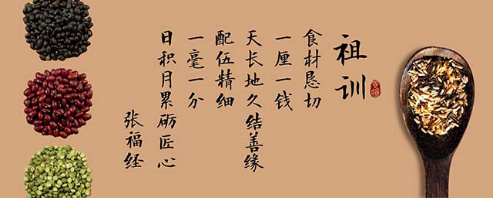 祖训
食材恳切
一厘一钱
天长地久结善缘
配伍精细
一毫一分
日积月累砺匠心
张福经